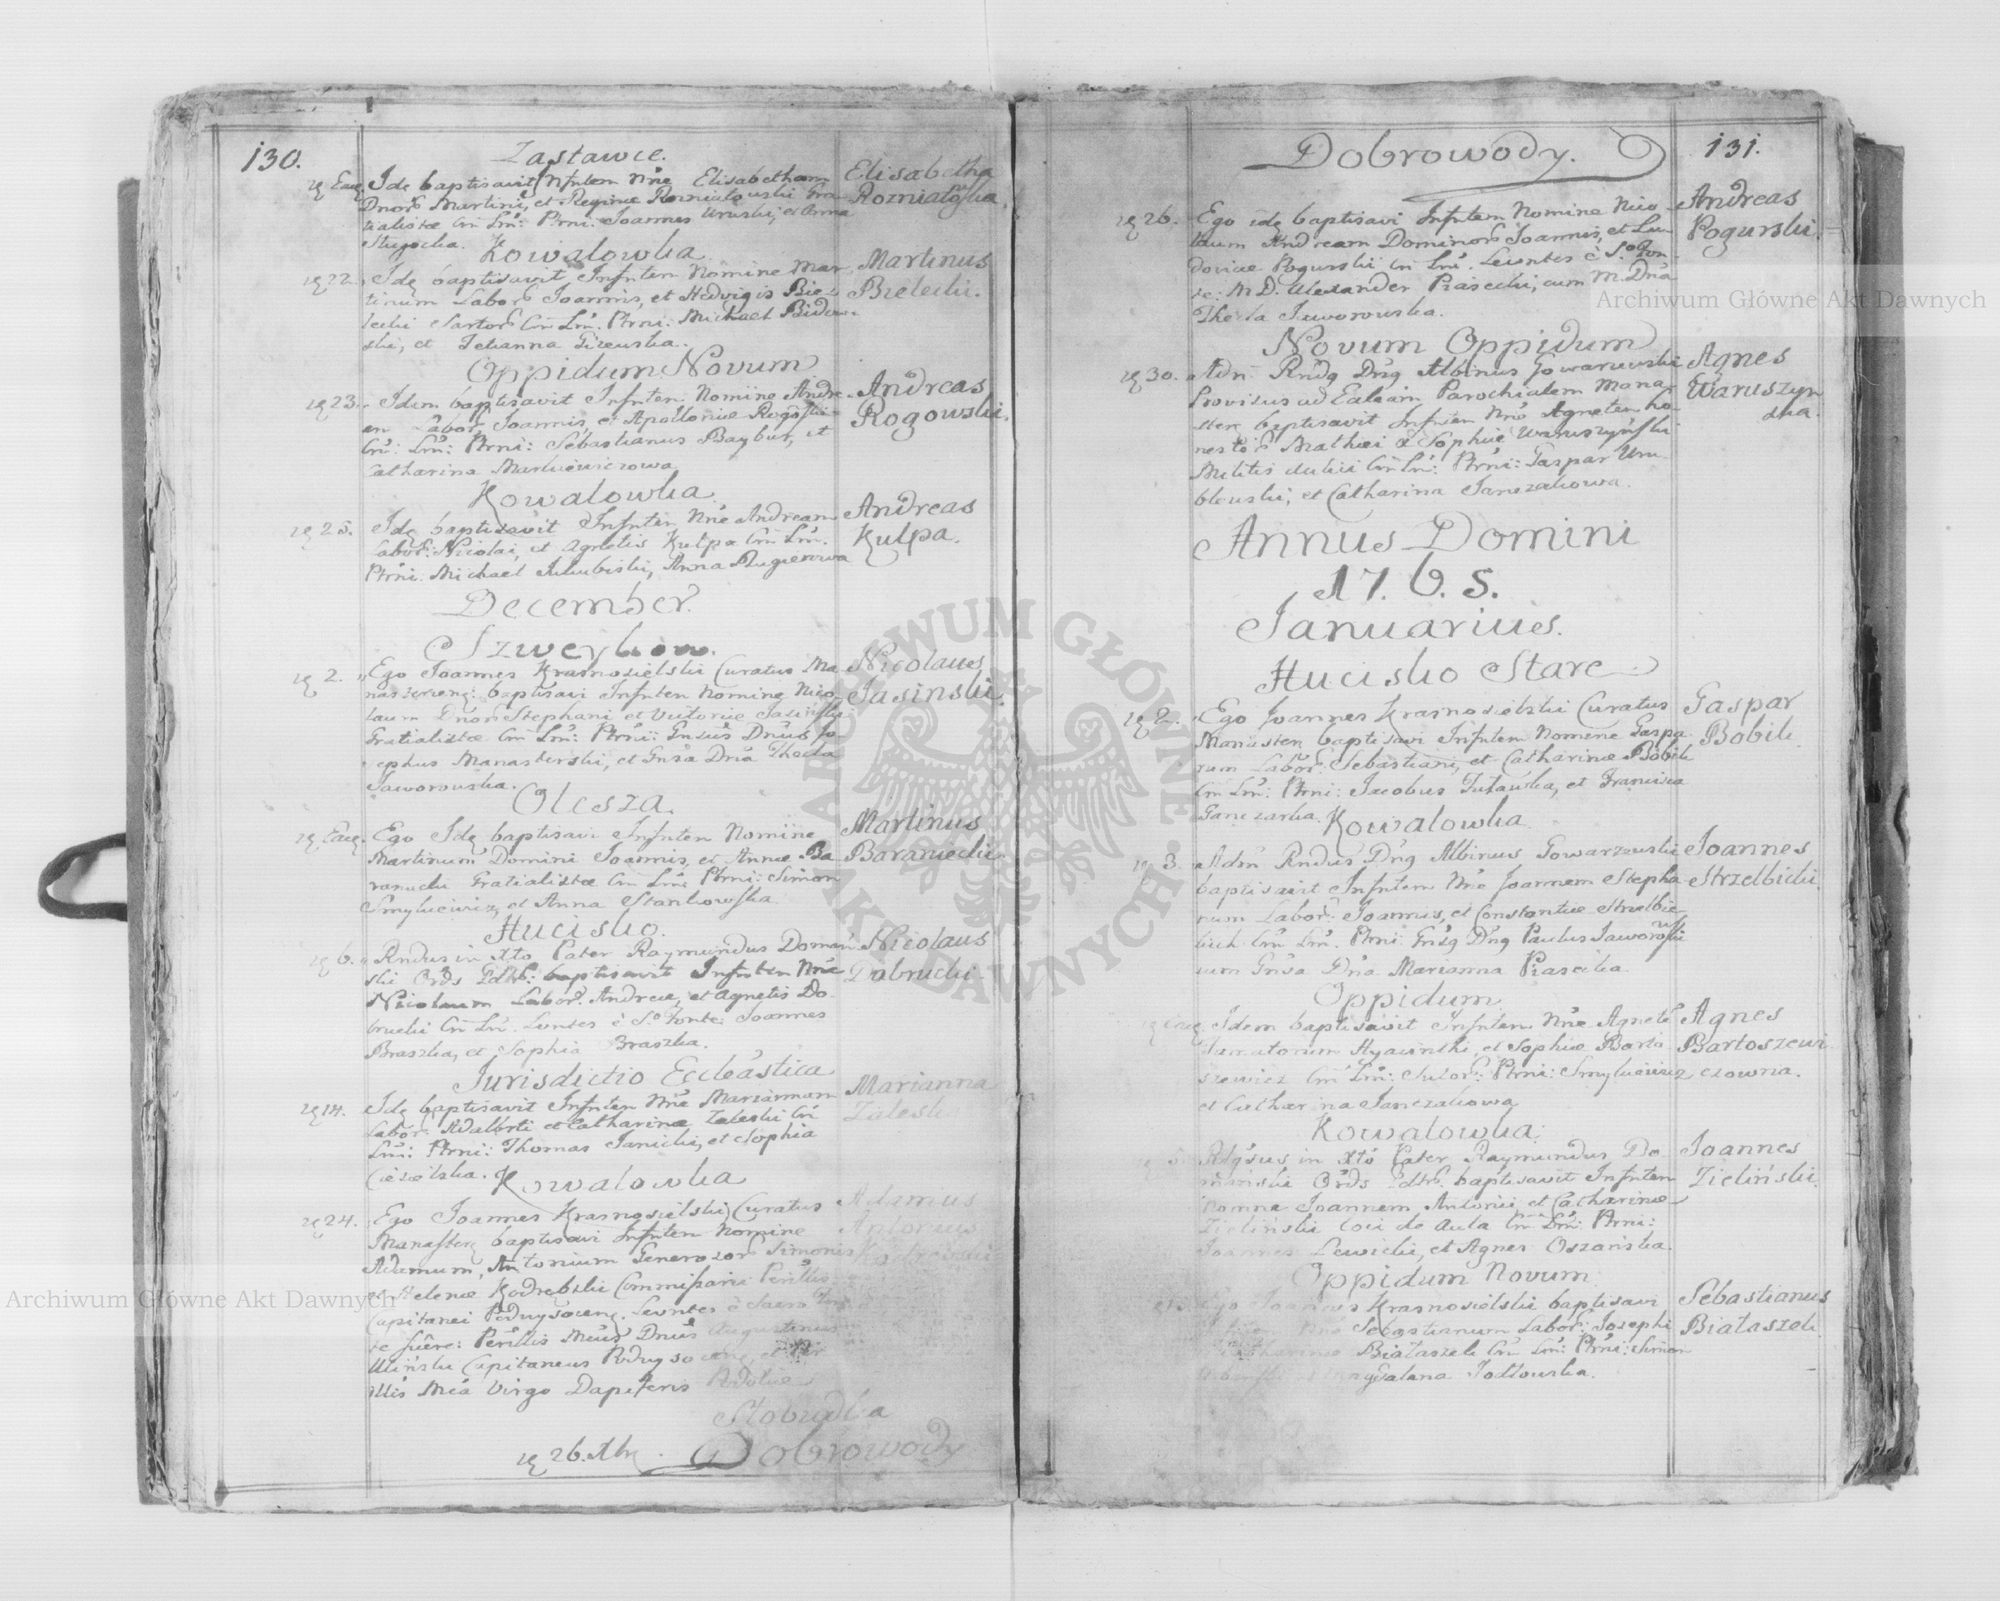 130.
Zastawce.
Eaq Idq baptisavit Infntem Nne Elisabetham
Dnorũ Martini, et Reginæ Rozniatouskii Gra-
tialistæ Cm Lm: Ptrni: Joannes Uruski, et Anna
Slugocka.
Elisabetha
Rozniatoska.
Kowalowka
22. Idq baptisavit Infntem Nomine Mar
tinum Labor Joannis, et Hedvigis Bie-
lecki Sartor Cm Lm. Ptrni: Michael
ski, et Tetianna
Martinus
Bielecki.
Oppidum Novum
23. Idem baptisavit Infntem Nomine Andre-
am Labor Joannis, et Apolloniæ Rogoski
Cm: Lm: Ptrni: Sebastianus Baybur, et
Catharina Markiewiczowa
Andreas
Rogowski.
Kowalowka
25. Idq baptisavit Infntem Nne Andream
Labor: Nicolai, et Agnetis Kulpa Cm Lm.
Ptrni: Michael Jakubiski, Anna
Andreas
Kulpa.
December.
Szweykow.
2. Ego Joannes Krasnosielski Curatus Ma-
nasterzenq: baptisavi Infntem Nomine Nico
laum Dnor Stephani et Victoriæ Jasinski
Gratialistæ Cm Lm: Ptrni: Gnsus Dnus Jo
sephus Manasterski, et Gnsa Dna Thecla
Jaworouska.
Nicolaus
Jasinski.
Olesza.
Eaq Ego Idq baptisavi Infntem Nomine
Martinum Domini Joannis, et Annæ Ba
raniecki Gratialistæ Cm Lm: Ptrni: Simon
Smylucivicz, et Anna Stankowska.
Martinus
Baraniecki
Hucisko.
6. Rndus in Xto Pater Raymundus Doman
ski Ords baptisavit Infntem Nne
Nicolaum Labor. Andreæ, et Agnetis Do-
brucki Cm Lm. Lvntes è So Fonte Joannes
Braszka, et Sophia Braszka.
Nicolaus
Dobrucki.
Jurisdictio Ecclêastica
14. Idq baptisavit Infntem Nne Mariannam
Labor: Adalbrti et Catharinæ Zaleski Cm
Lm: Ptrni: Thomas Janicki, et Sophia
Ciesielska.
Marianna
Zaleska
Kowalowka
24. Ego Joannes Krasnosielski Curatus
Manasterz baptisavi Infntem Nomine
Adamum, Antonium Generosor Simonis
et Helenæ Kodrebski Commissarii Perillis
Capitanei Podwysocenq. Levntes è Sacro Fon
te fuêre: Perillis Meus Dnus Augustinus
Ulinski Capitaneus Podwysocenq, et Per
illis Mea Virgo Dapiferis Podoliæ
Stobudka
Adamus
Antonius
Kodrebski
26. Xbr. Dobrowody
131.
Dobrowody.
26. Ego idq baptisavi Infntem Nomine Nico
laum Andream Dominor Joannis, et Lu-
doviæ Pogurskii Cm Lm. Levntes è So Fon-
te: M. D. Alexander Piasecki, cum M. Dna
Thecla Jaworouska.
Andreas
Pogurski.
Novum Oppidum
30. Adm Rndq Dnq Albinus Gowarzewski
Provisus ad Ealeam Parochialem Mona-
ster baptisavit Infntem Nne Agnetem ho-
nestor Mathæi & Sophiæ Waruszynski
Militis Cm Lm: Ptrni: Gaspar Wru-
bleuski, et Catharina Janczakowa.
Agnes
Waruszyn
ska.
Annus Domini
1765.
Januarius.
Hucisko Stare
2. Ego Joannes Krasnosielski Curatus
Manaster baptisavi Infntem Nomine Gaspa-
rum Labor: Sebastiani, et Catharinæ Bobik
Cm Lm: Ptrni: Jacobus Tutawka, et Francisca
Ganczarka.
Gaspar
Bobik.
Kowalowka
3. Adm Rndus Dnq Albinus Gowarzouski
baptisavit Infntem Nne Joannem Stepha
num Labor: Joannis, et Constantiæ Strzelbic-
kich Cm Lm. Ptrni: Gnsq Dnq Paulus Jaworouski
cum Gnsa Dna Marianna Piasecka
Joannes
Strzelbicki.
Oppidum
Eaeq Idem baptisavit Infntem Nne Agnetê
Famatorum Hyacinthi, et Sophiæ Barto
szewicz Cm Lm: Sutor: Ptrni: Smylucivicz
et Catharina Janczakowa
Agnes
Bartoszewi
czowna.
Kowalowka.
5. Rlgsus in Xto Pater Raymundus Do
manski Ords baptisavit Infntem
nomne Joannem Antonii, et Catharinæ
Zielinski Coci de Aula Cm Lm: Ptrni:
Joannes Lewicki, et Agnes Oszanska.
Joannes
Zielinski.
Oppidum Novum
Ego Joannes Krasnosielski baptisavi
Sebastianum Labor: Josephi
Catharinæ Białaszek Cm Lm: Ptrni: Simon
Magdalena Jodłowska.
Sebastianus
Białaszek.
Archiwum Główne Akt Dawnych
Archiwum Główne Akt Dawnych
ARCHIWUM GŁÓWNE AKT DAWNYCH